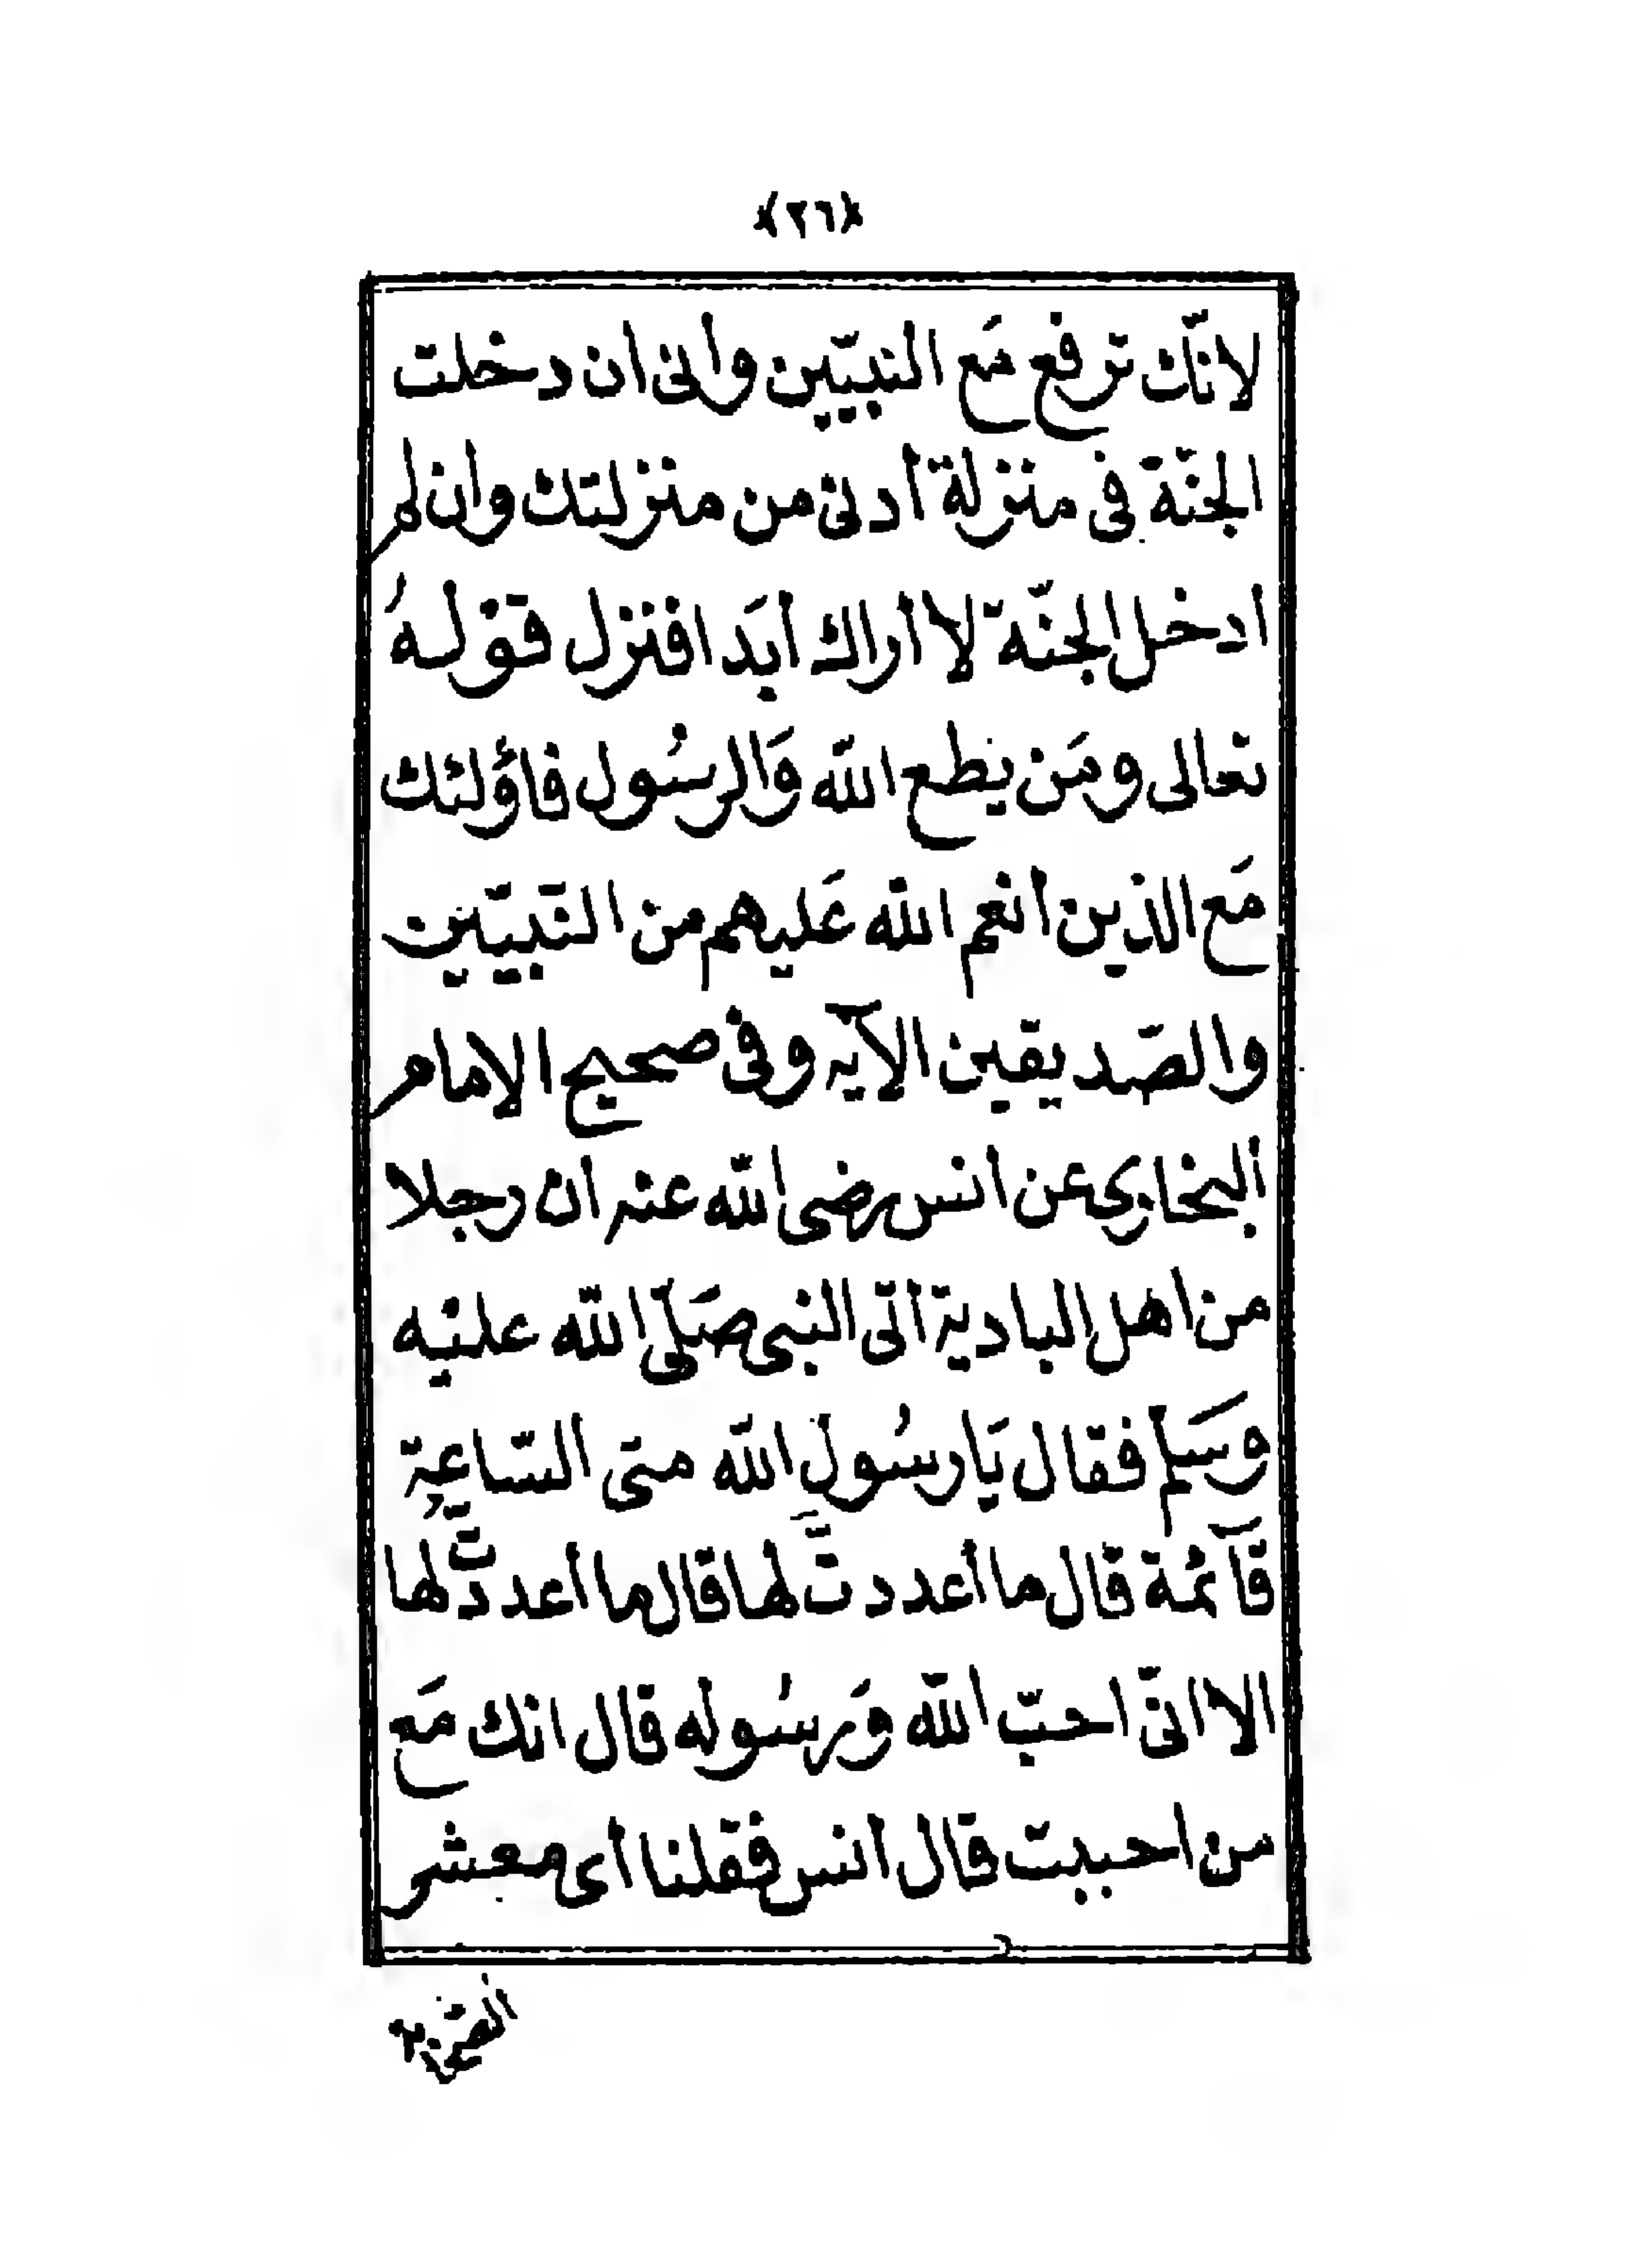 ﴿٢٦﴾
لانّك ترفع مَع النبيّين وانى ان دخلت
الجنّة فى منزلة أدنى من منزلتك وان لم
ادخل الجنّة لا اراك أبَدا فنزل قوْلهُ
تعالى ومَن يطع الله وَالرسُول فاؤلئك
مَع الذين انعم الله عَليهم من النبيّين
والصّديقين الآيه وفى صحيح الامام
ألبخارى عن انس رضى الله عنه ان رجلا
من اهل البادية اتى النبى صَلّى الله عليْه
وسَلم فقال يَا رسُولَ الله متى السّاعةِ
قآئمة قال ما أعددتّ لها قال ما أعددتّ لها
الا انىّ احبّ الله وَرسُوله قال انك مَع
من احببت قال انس فقلنا اى معشر